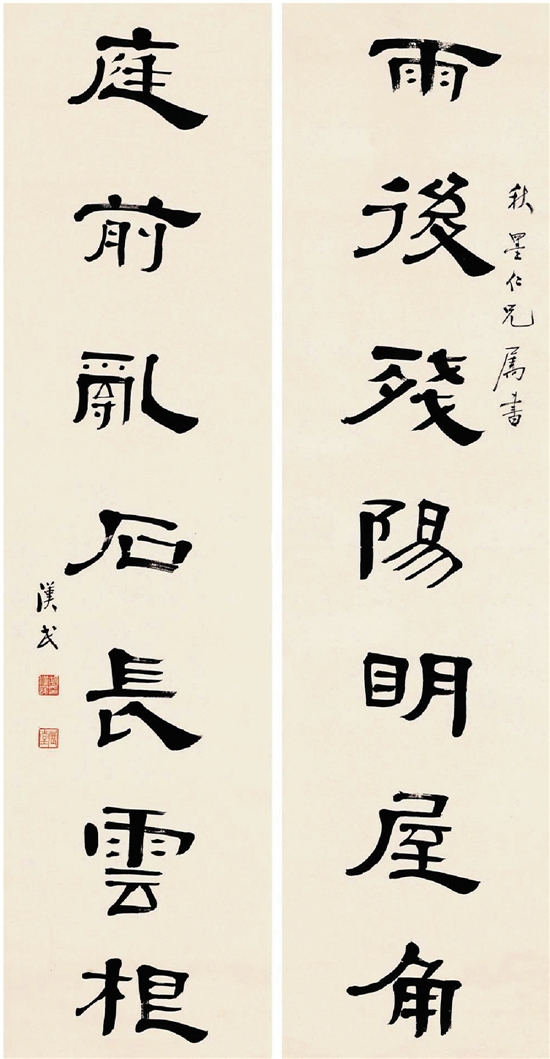 秋墨仁兄属書
雨後殘陽明屋角
庭前亂石長雲根
漢民